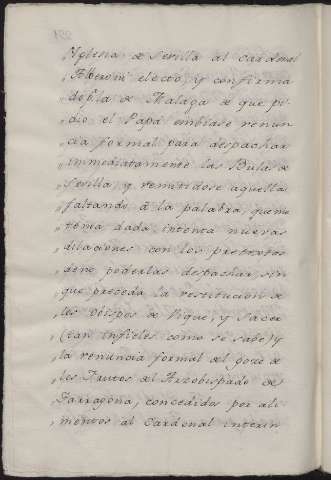 Yglesia de Sevilla al Cardenal
„Alberoni electo, y confirma
„do pla de Malaga de que pi
„dio el Papa embiase renun
„cia formal para despachar
„immediatamente las Bulas de
„Sevilla y remitidose aquella
„faltando â la palabra, que me
„tenia dada intenta nuevas
„dilaciones con los pretextos
„de no poderlas despachar, sin
„que preceda la restitucion de
„los obispos de Vique, y Sacer
„(tan infieles como se sabe) y
„la renuncia formal del goze de
„los Frutos del Arzobispado de
„Tarragona, concedidos por ali
„mentos al Cardenal interin